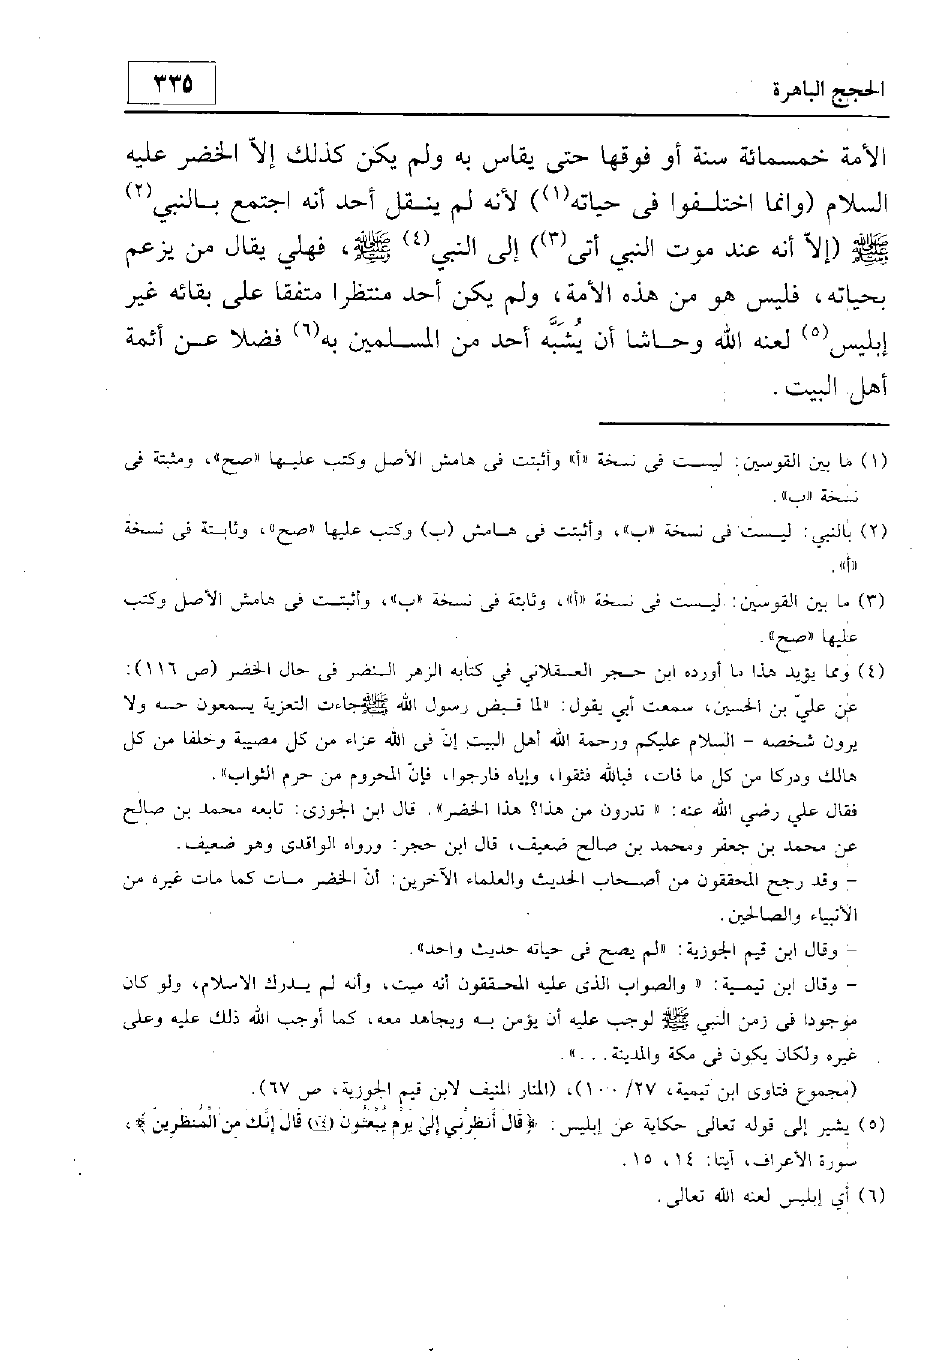 الحجج الباهرة
٣٣٥
الأمة خمسمائة سنة أو فوقها حتى يقاس به ولم يكن كذلك إلاّ الخضر عليه
السلام (وانما اختلفوا فى حياته(١)) لأنه لم ينقل أحد أنه اجتمع بالنبي(٢)
ﷺ (إلاّ أنه عند موت النبي أتى(٣)) إلى النبي(٤) ﷺ، فهلي يقال من يزعم
بحياته، فليس هو من هذه الأمة، ولم يكن أحد منتظرا متفقا على بقائه غير
إبليس(٥) لعنه الله وحاشا أن يُشَبَّه أحد من المسلمين به(٦) فضلا عن أئمة
أهل البيت.
(١) ما بين القوسين: ليست فى نسخة «أ» وأثبتت فى هامش الأصل وكتب عليها «صح»، ومثبتة فى
نسخة «ب».
(٢) بالنبي: ليست فى نسخة «ب»، وأثبتت فى هامش (ب) وكتب عليها «صح»، وثابتة فى نسخة
«أ».
(٣) ما بين القوسين: ليست فى نسخة «أ»، وثابتة فى نسخة «ب»، وأثبتت فى هامش الأصل وكتب
عليها «صح».
(٤) ومما يؤيد هذا ما أورده ابن حجر العسقلاني في كتابه الزهر النضر فى حال الخضر (ص ١١٦):
عن عليّ بن الحسين، سمعت أبي يقول: «لما قبض رسول الله ﷺ جاءت التعزية يسمعون حسه ولا
يرون شخصه - السلام عليكم ورحمة الله أهل البيت إنّ فى الله عزاء من كل مصيبة وخلفا من كل
هالك ودركا من كل ما فات، فبالله فثقوا، وإياه فارجوا، فإنّ المحروم من حرم الثواب».
فقال علي رضي الله عنه: « تدرون من هذا؟ هذا الخضر». قال ابن الجوزى: تابعه محمد بن صالح
عن محمد بن جعفر ومحمد بن صالح ضعيف، قال ابن حجر: ورواه الواقدى وهو ضعيف.
- وقد رجح المحققون من أصحاب الحديث والعلماء الآخرين: أنّ الخضر مات كما مات غيره من
الأنبياء والصالحين.
- وقال ابن قيم الجوزية: «لم يصح فى حياته حديث واحد».
- وقال ابن تيمية: « والصواب الذى عليه المحققون أنه ميت، وأنه لم يدرك الاسلام، ولو كان
موجودا فى زمن النبي ﷺ لوجب عليه أن يؤمن به ويجاهد معه، كما أوجب الله ذلك عليه وعلى
غيره ولكان يكون فى مكة والمدينة...».
(مجموع فتاوى ابن تيمية، ٢٧/ ١٠٠)، (المنار المنيف لابن قيم الجوزية، ص ٦٧).
(٥) يشير إلى قوله تعالى حكاية عن إبليس: ﴿قَالَ أَنظِرْنِي إِلَىٰ يَوْمِ يُبْعَثُونَ (١٤) قَالَ إِنَّكَ مِنَ الْمُنظَرِينَ﴾،
سورة الأعراف، آيتا: ١٤، ١٥.
(٦) أي إبليس لعنه الله تعالى.